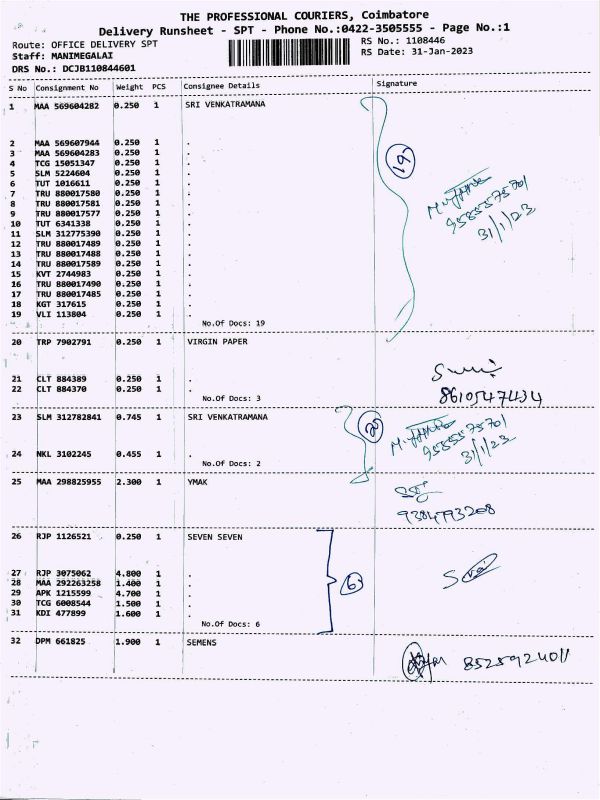 THE PROFESSIONAL COURIERS, Coimbatore
Delivery Runsheet - SPT - Phone No.:0422-3505555 - Page No.:1
Route: OFFICE DELIVERY SPT
RS No.: 1108446
Staff: MANIMEGALAI
RS Date: 31-Jan-2023
DRS No.: DCJB110844601
S No Consignment No Weight PCS Consignee Details Signature
1 MAA 569604282 0.250 1 SRI VENKATRAMANA
2 MAA 569607944 0.250 1 .
3 MAA 569604283 0.250 1 .
4 TCG 15051347 0.250 1 .
5 SLM 5224604 0.250 1 .
6 TUT 1016611 0.250 1 .
7 TRU 880017580 0.250 1 .
8 TRU 880017581 0.250 1 .
9 TRU 880017577 0.250 1 .
10 TUT 6341338 0.250 1 .
11 SLM 312775390 0.250 1 .
12 TRU 880017489 0.250 1 .
13 TRU 880017488 0.250 1 .
14 TRU 880017589 0.250 1 .
15 KVT 2744983 0.250 1 .
16 TRU 880017490 0.250 1 .
17 TRU 880017485 0.250 1 .
18 KGT 317615 0.250 1 .
19 VLI 113804 0.250 1 .
No.Of Docs: 19
19
9585575701
31/1/23
20 TRP 7902791 0.250 1 VIRGIN PAPER
21 CLT 884389 0.250 1 .
22 CLT 884370 0.250 1 .
No.Of Docs: 3
8610547434
23 SLM 312782841 0.745 1 SRI VENKATRAMANA
24 NKL 3102245 0.455 1 .
No.Of Docs: 2
9585575701
31/1/23
25 MAA 298825955 2.300 1 YMAK
9384793208
26 RJP 1126521 0.250 1 SEVEN SEVEN
27 RJP 3075062 4.800 1 .
28 MAA 292263258 1.400 1 .
29 APK 1215599 4.700 1 .
30 TCG 6008544 1.500 1 .
31 KDI 477899 1.600 1 .
No.Of Docs: 6
6
32 DPM 661825 1.900 1 SEMENS
8525924011